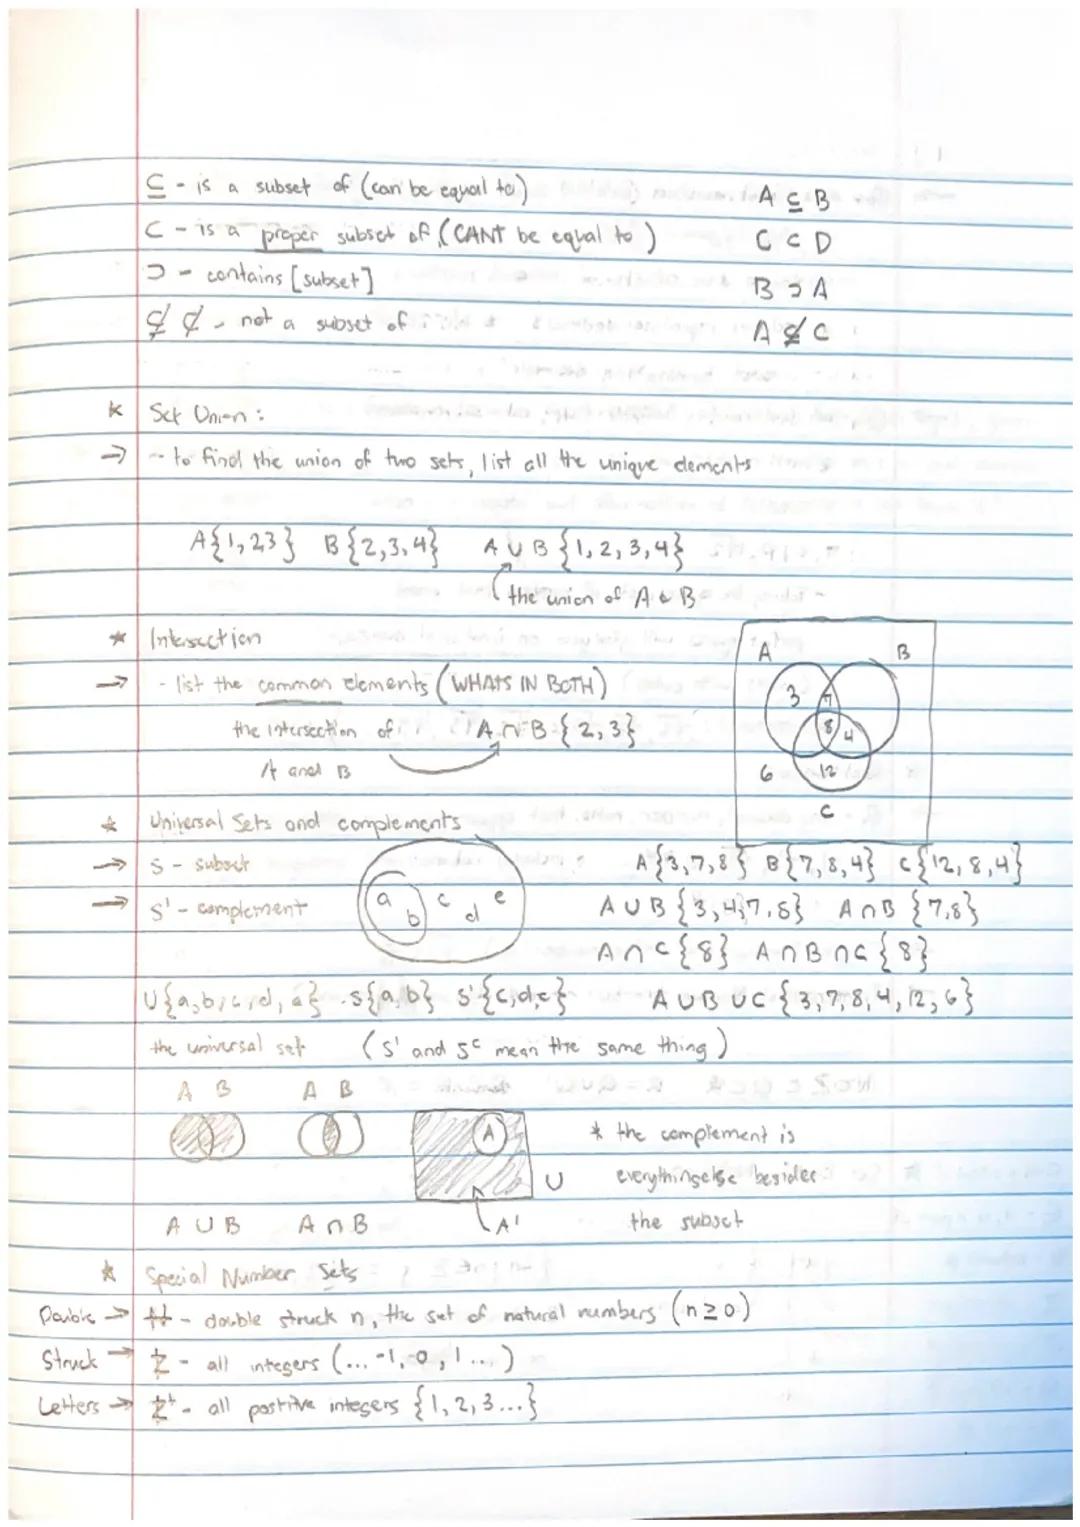 ⊆ - is a subset of (can be equal to) A ⊆ B
⊂ - is a proper subset of (CANT be equal to) C ⊂ D
⊃ - contains [subset] B ⊃ A
⊈ ⊄ - not a subset of A ⊈ C
* Set Union:
→ - to find the union of two sets, list all the unique elements
A{1,2,3} B{2,3,4} A ∪ B {1,2,3,4}
the union of A & B
* Intersection
→ - list the common elements (WHATS IN BOTH)
the intersection of A ∩ B {2,3}
A and B
A B
3 7
8 4
6 12
C
* Universal Sets and complements
→ S - subset
→ S' - complement
a b c d e
A{3,7,8} B{7,8,4} C{12,8,4}
A ∪ B {3,4,7,8} A ∩ B {7,8}
A ∩ C {8} A ∩ B ∩ C {8}
U{a,b,c,d,e} S{a,b} S'{c,d,e} A ∪ B ∪ C {3,7,8,4,12,6}
the universal set (S' and Sᶜ mean the same thing)
A B A B
A
U
A ∪ B A ∩ B A'
* the complement is
everything else besides
the subset
* Special Number Sets
Double → ℕ - double struck n, the set of natural numbers (n ≥ 0)
Struck → ℤ - all integers (... -1, 0, 1 ...)
Letters → ℤ⁺ - all positive integers {1, 2, 3...}